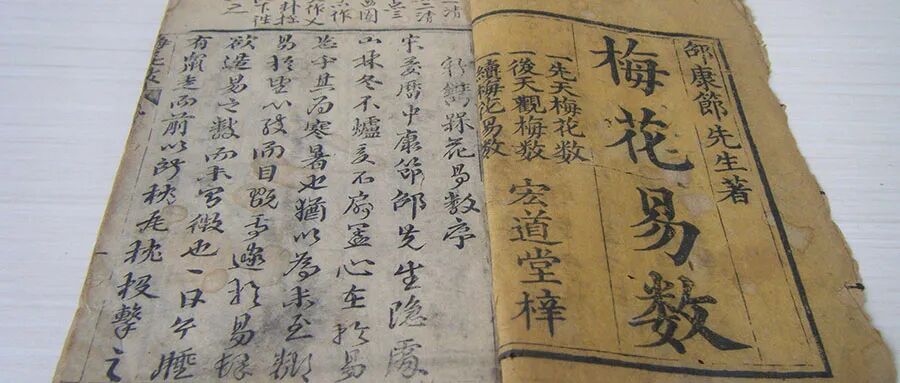 邵康節先生著
梅花易数
一先天梅花数
一後天觀梅数
一續梅花易数
宏道堂梓
新鐫槑花易数序
宋慶曆中康節邵先生隱處
山林冬不爐夏不扇蓋心在於易
忘乎其為寒暑也猶以為未至糊
易於壁心致而目翫焉邃於易理
欲造易之數而未有徵也一日午睡
有鼠走而前以所枕瓦枕投擊之